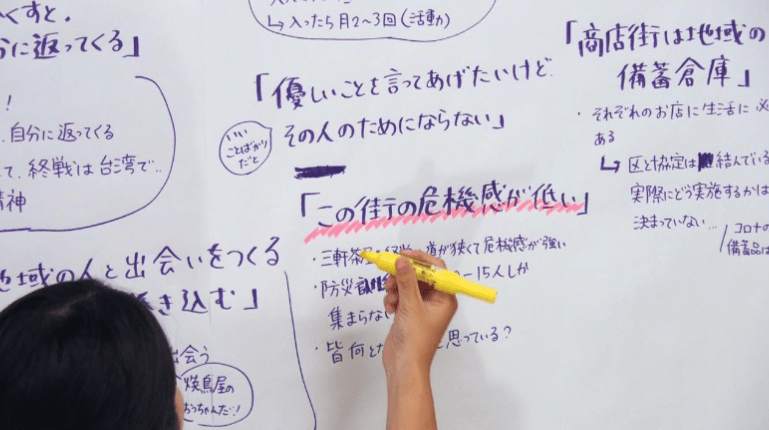 くすと.
分に返ってくる」
!
自分に返ってくる
て、終戦は台湾で..
精神
地域の人と出会いをつくる
き込む」
出会う
焼鳥屋の
おっちゃんだ..!
↳入ったら月2~3回(活動)
「優しいことを言ってあげたいけど
その人のためにならない」
いい
ことばかり
だと
「この街の危機感が低い」
・三軒茶 道が狭くて危機感が強い
・防災 -15人しか
集まらない
・皆 何と 思っている?
「商店街は地域の
備蓄倉庫」
・それぞれのお店に生活に必
ある
↳区と協定は 結んでいる
実際にどう実施するかは
決まっていない…
コロナの
備蓄品は